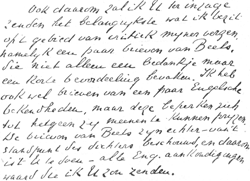 Ook daarom zal ik U ter inzage
zenden het belangrijkste wat ik bezit
op 't gebied van critiek mijner verzen
namelijk een paar brieven van Beets,
die niet alleen een bedankje maar
een korte beoordeeling bevatten. Ik heb
ook wel brieven van een paar Engelsche
bekendheden, maar deze beperken zich
tot hetgeen zij meenen te kunnen prijzen.
De brieven van Beets zijn echter vanuit
standpunt des dichters beschouwd, en daarom
is 't te doen - alle Eng. aankondigingen
waard die ik U zou zenden.